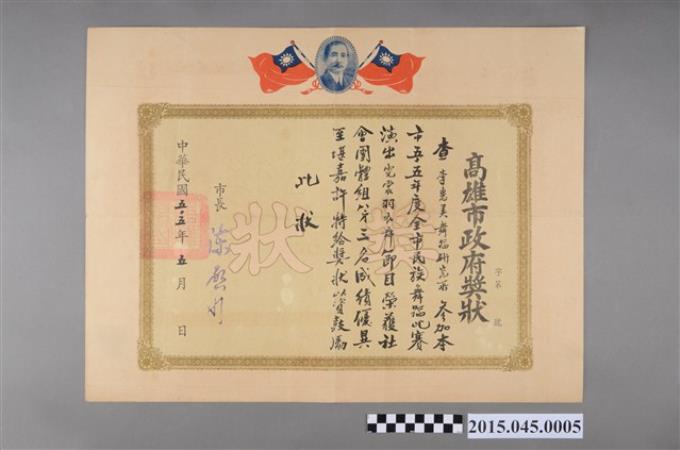 高雄市政府獎狀
字第 號
查李惠美舞蹈研究所參加本
市五五年度全市民族舞蹈比賽
演出霓裳羽衣舞節目榮獲社
會團體組第三名成績優異
至堪嘉許特給獎狀以資鼓勵
此狀
市長 陳啓川
中華民國五五年五月 日
獎狀
2015.045.0005